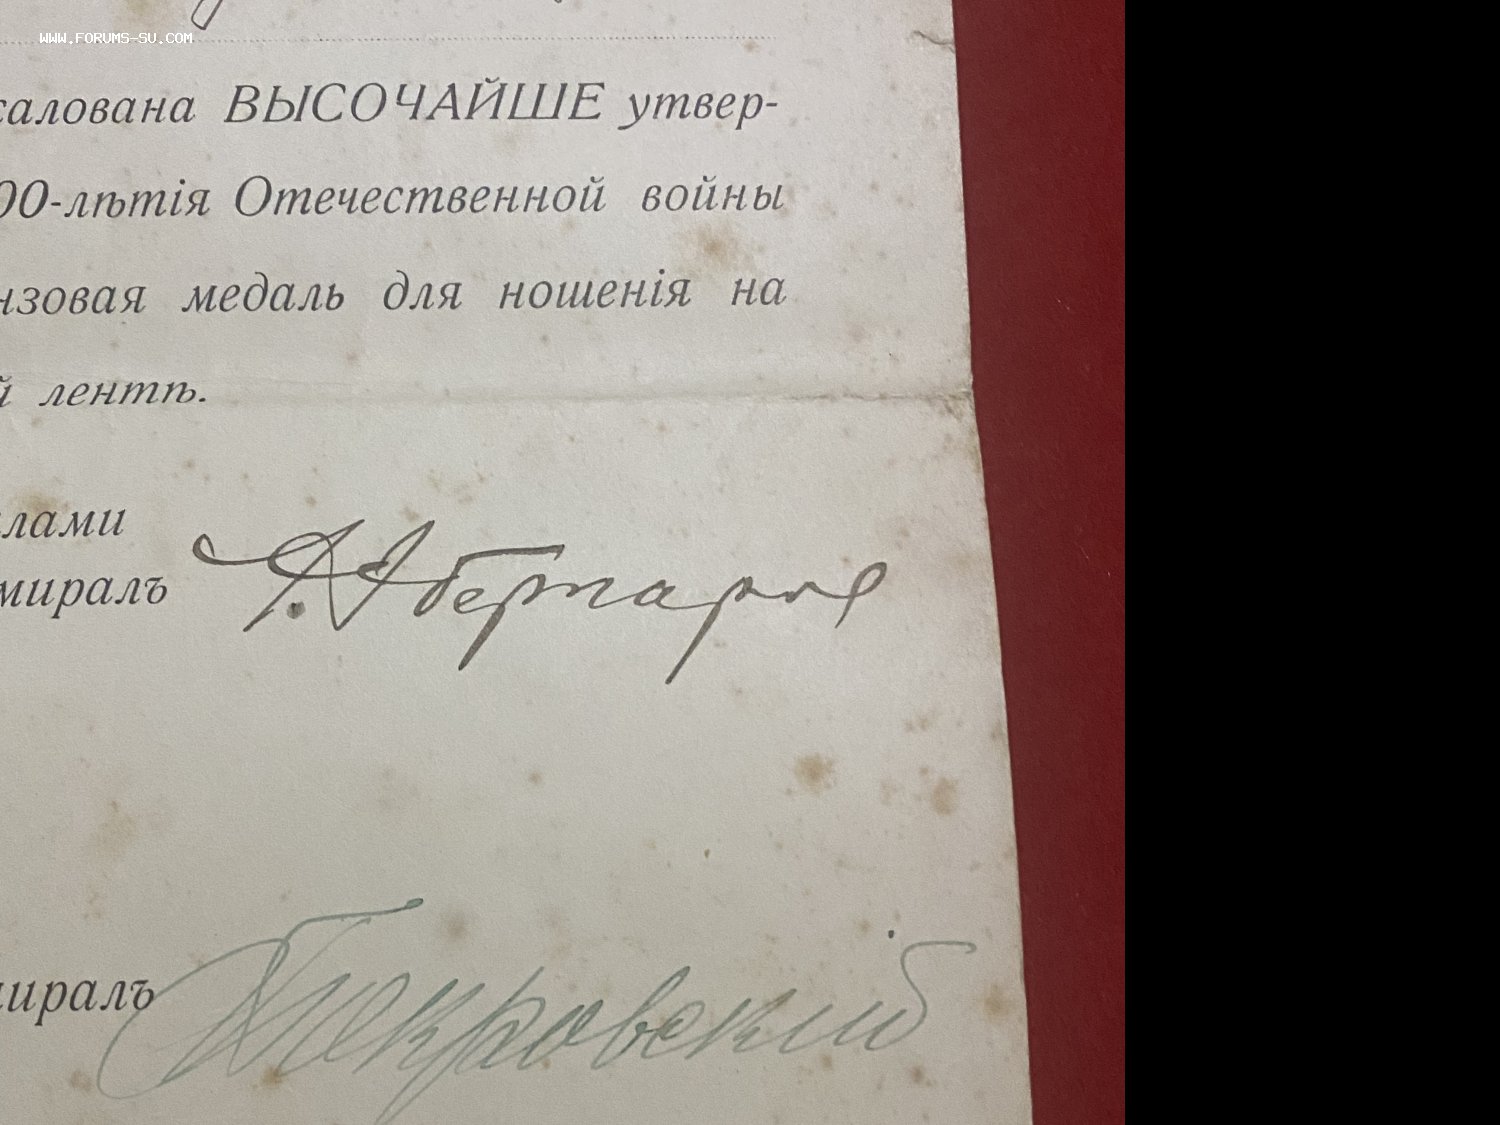 WWW.FORUMS-SU.COM
алована ВЫСОЧАЙШЕ утвер-
00-лѣтія Отечественной войны
нзовая медаль для ношенія на
й лентѣ.
лами
миралъ
иралъ Покровскій